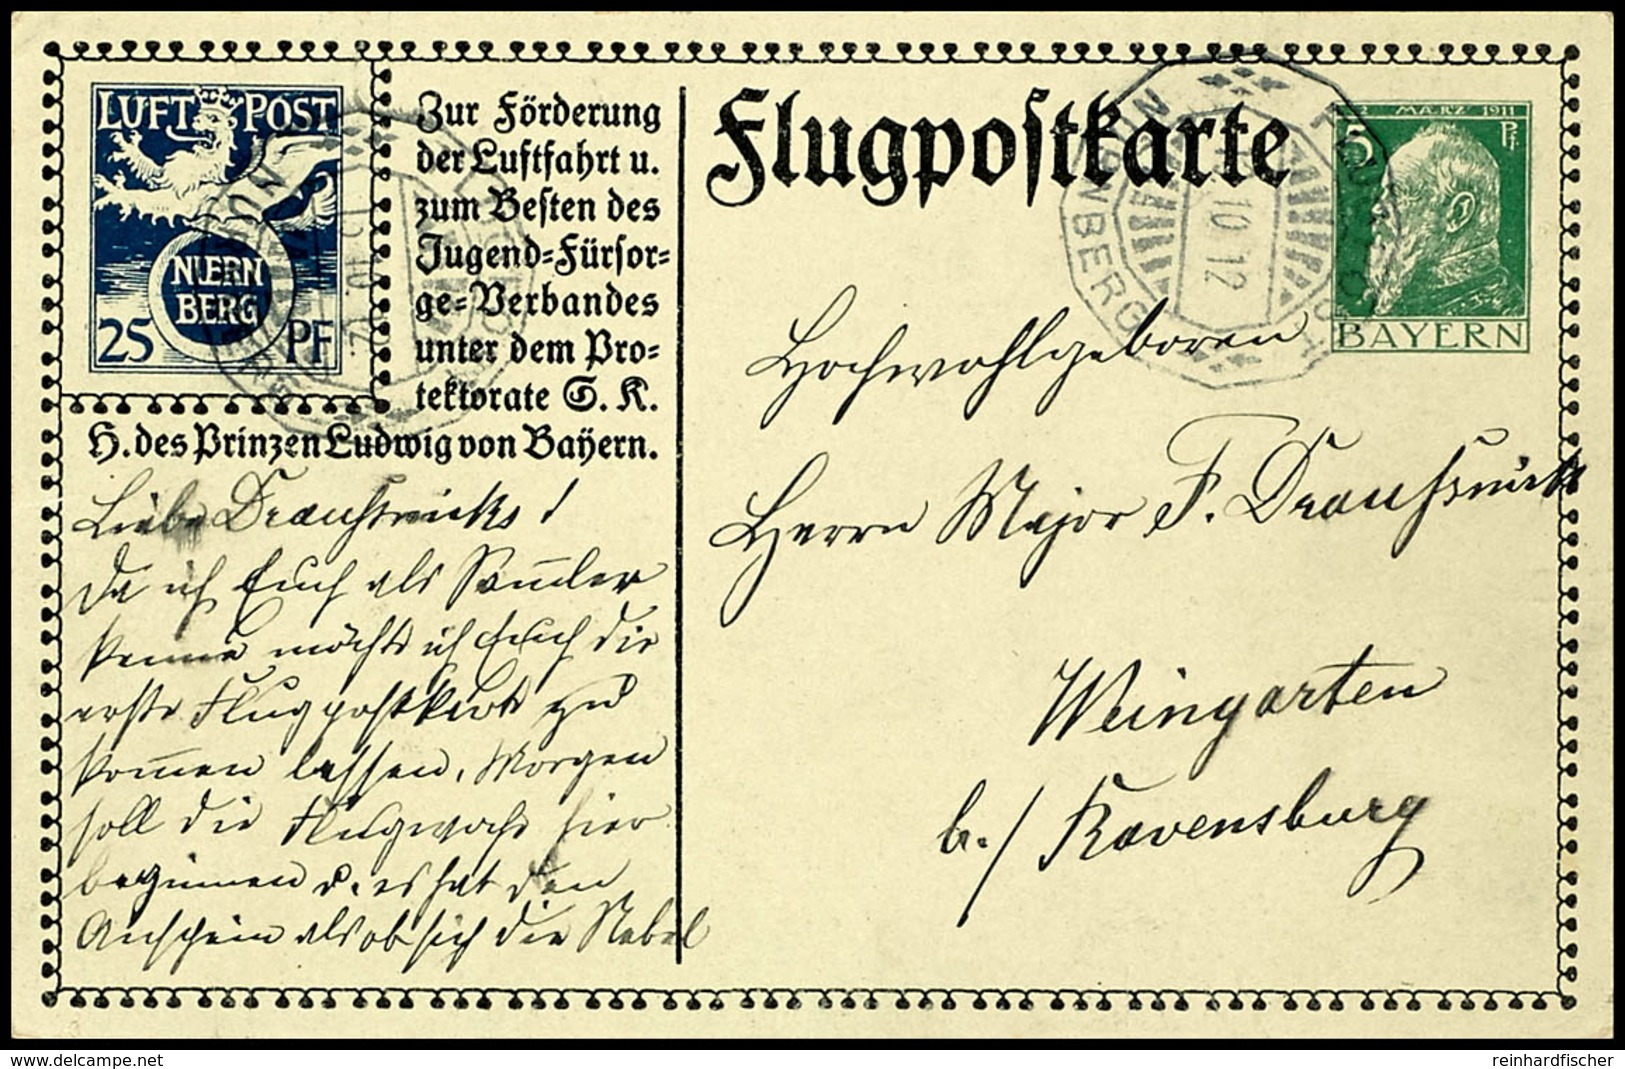 LUFT POST
NUERN
BERG
25 PF
Zur Förderung
der Luftfahrt u.
zum Besten des
Jugend=Fürsor=
ge=Verbandes
unter dem Pro=
tektorate S. K.
H. des Prinzen Ludwig von Bayern.
Flugpostkarte
MÄRZ 1911
5 Pf.
BAYERN
NÜRNBERG
10. 12
Hochwohlgeboren
Herrn Major F.
Weingarten
b./ Ravensburg
Liebe
Da ich Euch als Sam̅ler
kenne möchte ich Euch die
erste Flugpostkarte zu
kom̅en lassen. Morgen
soll die Flugwoche hier
beginnen u. es hat den
Anschein als ob sich die Nebel
www.delcampe.net
reinhardfischer